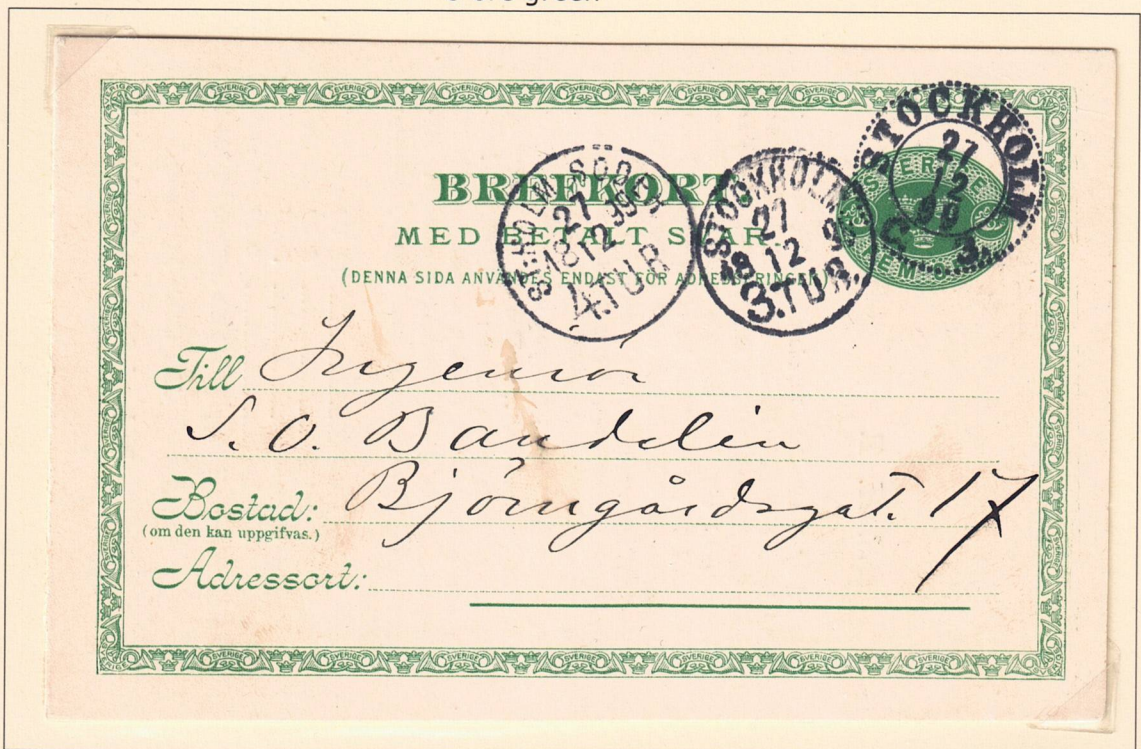 green
BREFKORT
MED BETALT SVAR
(DENNA SIDA ANVÄNDES ENDAST FÖR ADRESSERINGEN)
STOCKHOLM
27
12
99
STOCKHOLM
27
12
3.TUR
STHOLM SÖDER
27
1812 99
4.TUR
SVERIGE
FEM
Till Ingeniör
S. O. Bandelin
Bostad: Björngårdsgat. 17
(om den kan uppgifvas.)
Adressort: